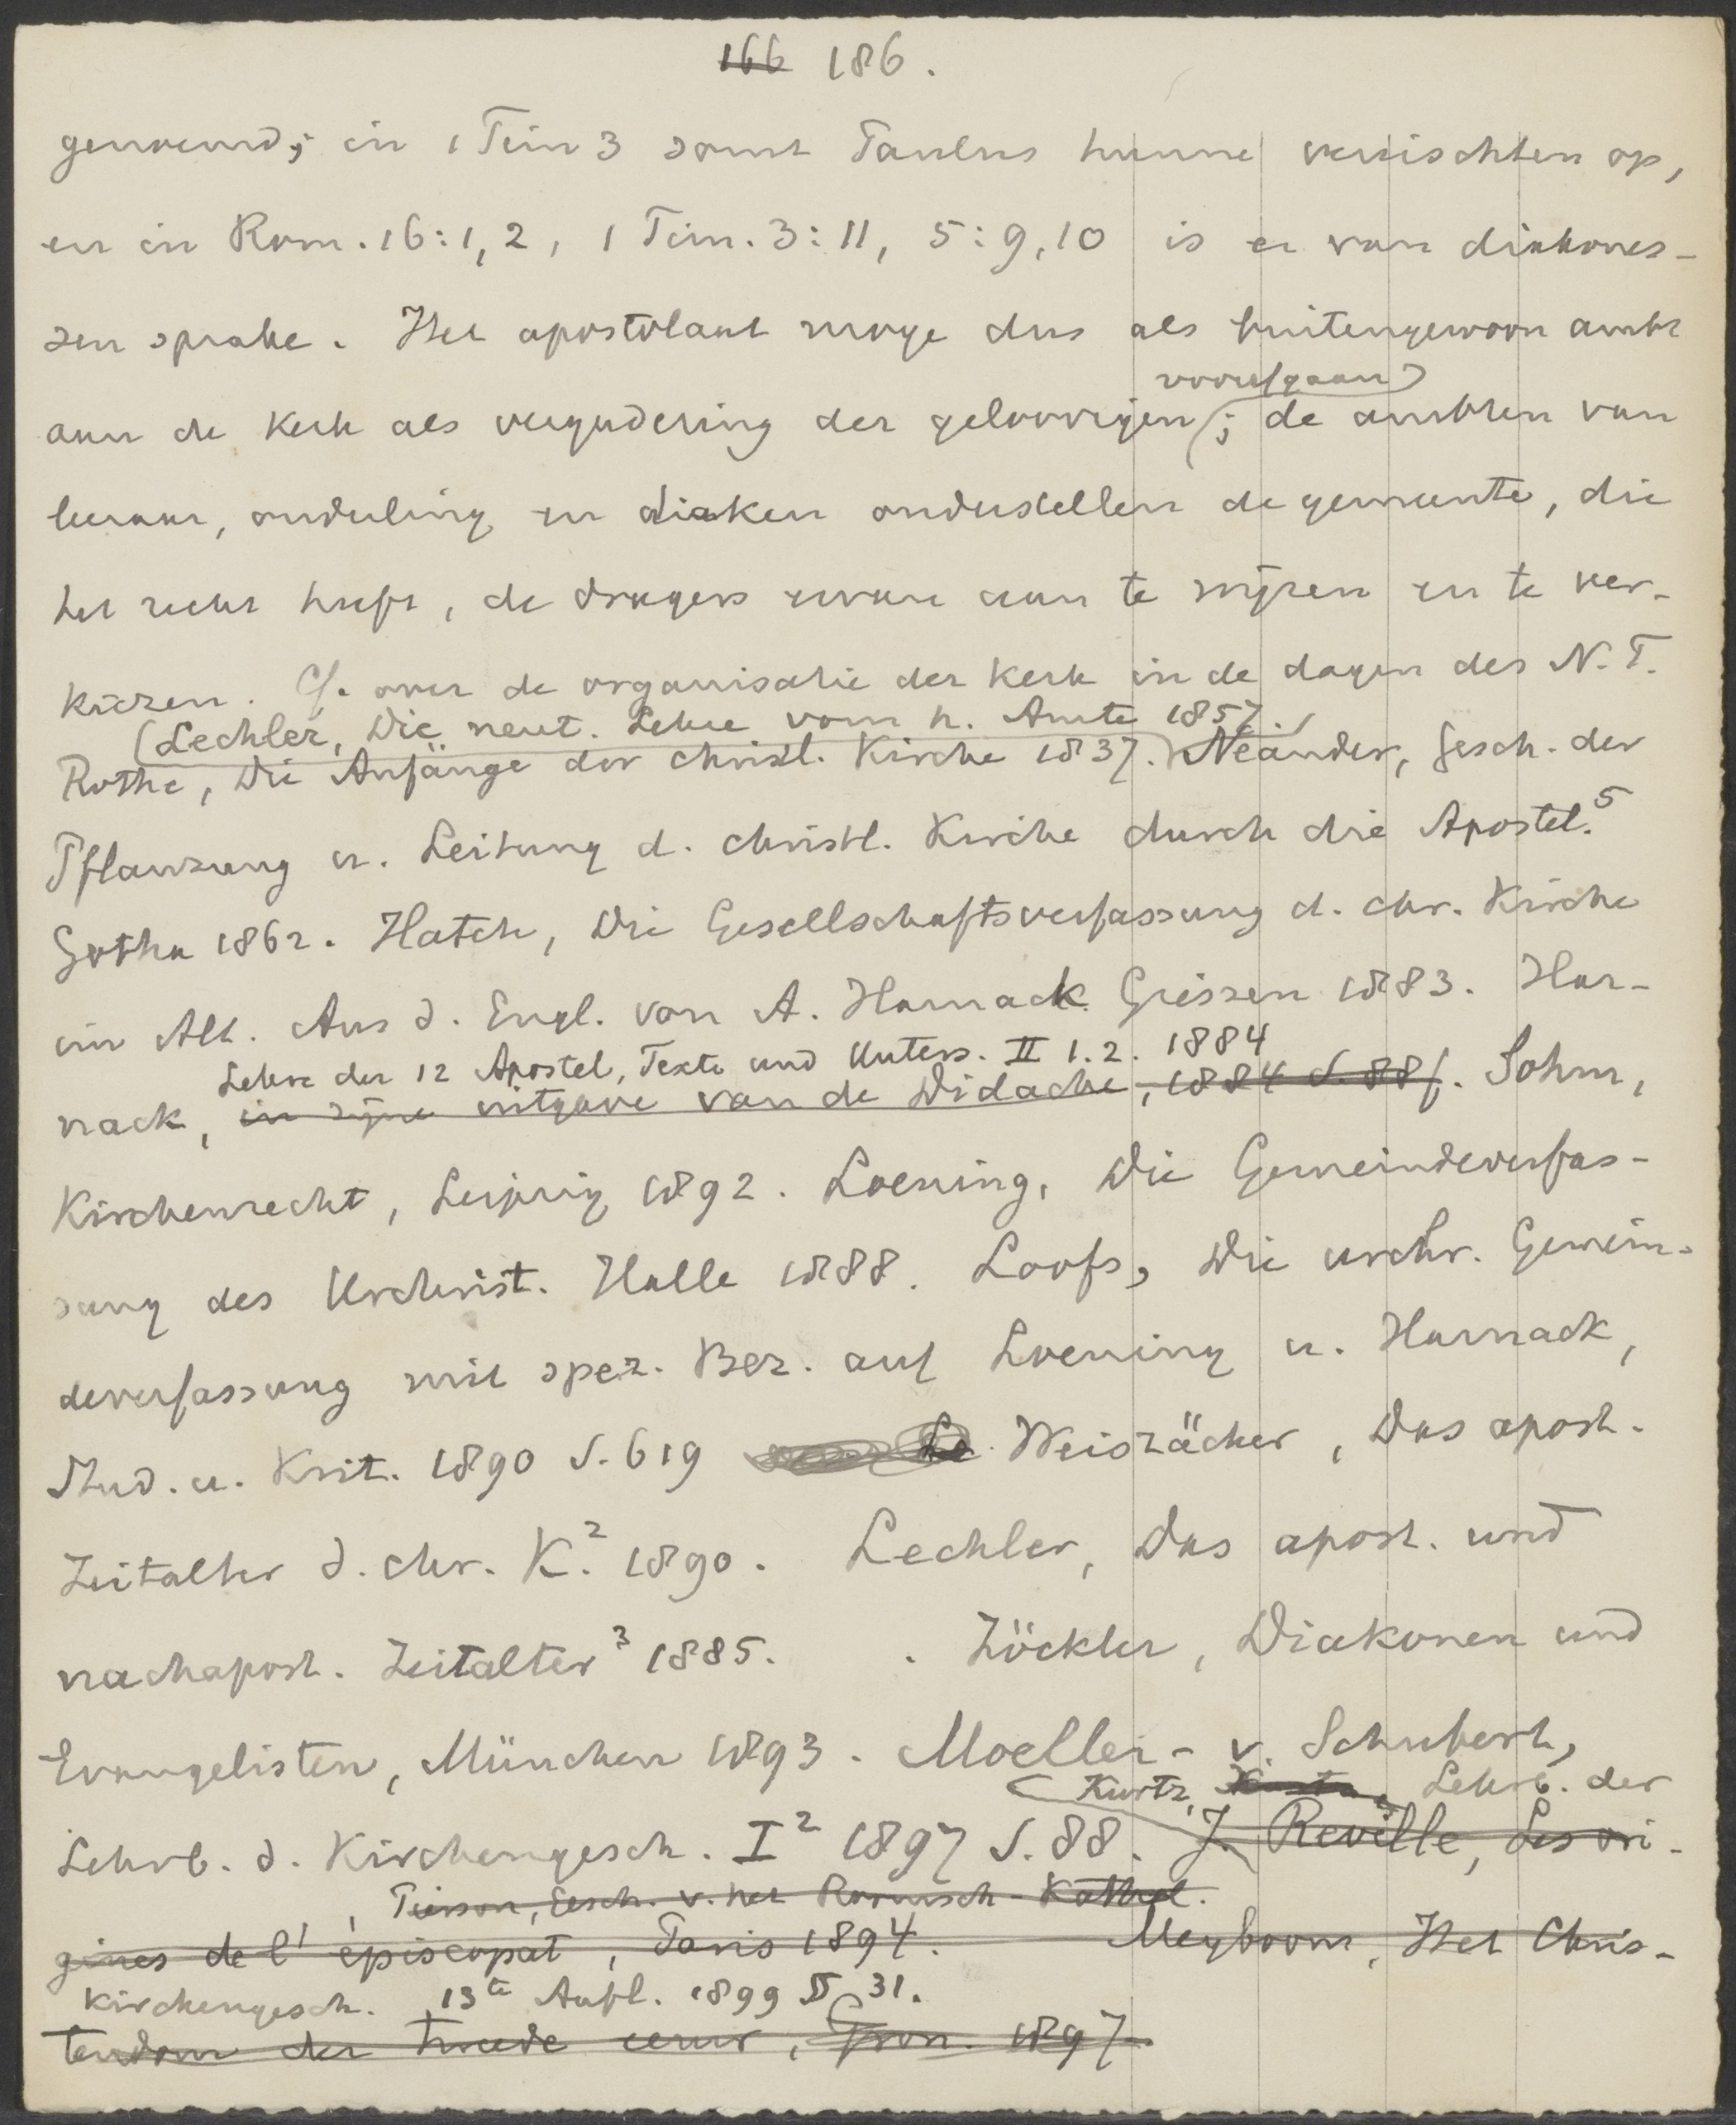 166 186.
genoemd; in 1 Tim 3 somt Paulus hunne vereischten op,
en in Rom. 16:1,2, 1 Tim. 3:11, 5:9,10 is er van diakones-
sen sprake. Het apostolaat moge dus als buitengewoon ambt
voorafgaan
aan de kerk als vergadering der geloovigen; de ambten van
leeraar, ouderling en diaken onderstellen de gemeente, die
het recht heeft, de dragers ervan aan te wijzen en te ver-
kiezen. Cf. over de organisatie der kerk in de dagen des N.T.
Lechler, Die neut. Lehre vom h. Amte 1857.
Rothe, Die Anfänge der christl. Kirche 1837. Neander, Gesch. der
Pflanzung u. Leitung d. christl. Kirche durch die Apostel.5
Gotha 1862. Hatch, Die Gesellschaftsverfassung d. chr. Kirche
im Alt. Aus d. Engl. von A. Harnack Giessen 1883. Har-
Lehre der 12 Apostel, Texte und Unters. II 1.2. 1884
nack, in zijne uitgave van de Didache, 1884 S. 88f. Sohm,
Kirchenrecht, Leipzig 1892. Loening, Die Gemeindeverfas-
sung des Urchrist. Halle 1888. Loofs, Die urchr. Gemein-
deverfassung mit spez. Bez. auf Loening u. Harnack,
Stud. u. Krit. 1890 S. 619 Weiszäcker, Das apost.
Zeitalter d. chr. K.2 1890. Lechler, Das apost. und
nachapost. Zeitalter3 1885. . Zöckler, Diakonen und
Evangelisten, München 1893. Moeller- v. Schubert,
Kurtz, Lehrb. der
Lehrb. d. Kirchengesch. I2 1897 S. 88. J. Reville, Les ori-
, Pierson, Gesch. v. het Roomsch-Kathol.
gines de l'épiscopat, Paris 1894. Meyboom, Het Chris-
Kirchengesch. 13te Aufl. 1899 § 31.
tendom der tweede eeuw, Gron. 1897